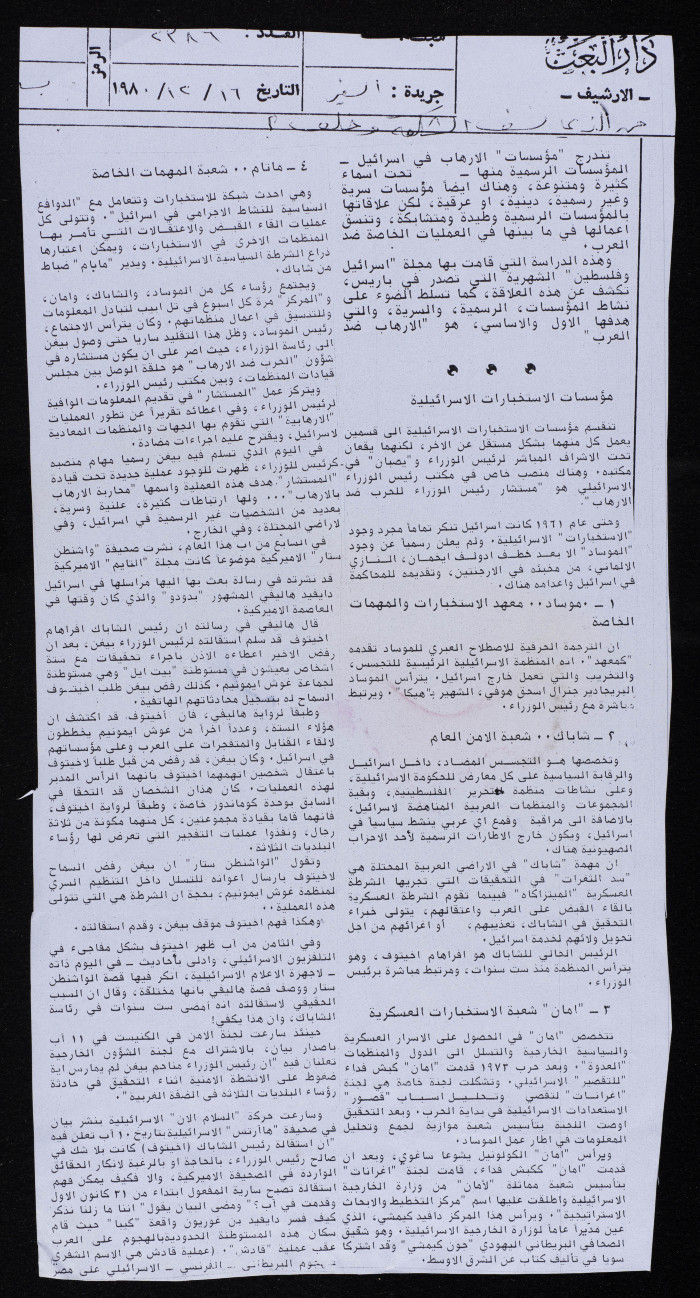 دار البعث
ــ الارشيف ــ
العدد : ٢٣٨٦
الرمز
جريدة : السفير
التاريخ ١٦ / ١٢ / ١٩٨٠
تندرج "مؤسسات" الارهاب في اسرائيل ــ
المؤسسات الرسمية منها ــ تحت اسماء
كثيرة ومتنوعة، وهناك ايضا مؤسسات سرية
وغير رسمية، دينية، او عرقية، لكن علاقاتها
بالمؤسسات الرسمية وطيدة ومتشابكة، وتنسق
اعمالها في ما بينها في العمليات الخاصة ضد
العرب.
وهذه الدراسة التي قامت بها مجلة "اسرائيل
وفلسطين" الشهرية التي تصدر في باريس،
تكشف عن هذه العلاقة، كما تسلط الضوء على
نشاط المؤسسات، الرسمية، والسرية، والتي
هدفها الاول والاساسي، هو "الارهاب ضد
العرب"
مؤسسات الاستخبارات الاسرائيلية
تنقسم مؤسسات الاستخبارات الاسرائيلية الى قسمين
يعمل كل منهما بشكل مستقل عن الاخر، لكنهما يقعان
تحت الاشراف المباشر لرئيس الوزراء و"يصبان" في
مكتبه. وهناك منصب خاص في مكتب رئيس الوزراء
الاسرائيلي هو "مستشار رئيس الوزراء للحرب ضد
الارهاب".
وحتى عام ١٩٦١ كانت اسرائيل تنكر تماما مجرد وجود
"الاستخبارات" الاسرائيلية. ولم يعلن رسميا عن وجود
"الموساد" الا بعد خطف ادولف ايخمان، النازي
الالماني، من مخبئه في الارجنتين، وتقديمه للمحاكمة
في اسرائيل واعدامه هناك.
١ ــ موساد.. معهد الاستخبارات والمهمات
الخاصة
ان الترجمة الحرفية للاصطلاح العبري للموساد تقدمه
"كمعهد". انه المنظمة الاسرائيلية الرئيسية للتجسس،
والتخريب والتي تعمل خارج اسرائيل. يترأس الموساد
البريجادير جنرال اسحق هوفي، الشهير بـ"هيكا". ويرتبط
مباشرة مع رئيس الوزراء.
٢ ــ شاباك.. شعبة الامن العام
وتخصصها هو التجسس المضاد، داخل اسرائيل
والرقابة السياسية على كل معارض للحكومة الاسرائيلية،
وعلى نشاطات منظمة التحرير الفلسطينية، وبقية
المجموعات والمنظمات العربية المناهضة لاسرائيل،
بالاضافة الى مراقبة وقمع اي عربي ينشط سياسيا في
اسرائيل، ويكون خارج الاطارات الرسمية لأحد الاحزاب
الصهيونية هناك.
ان مهمة "شاباك" في الاراضي العربية المحتلة هي
"سد الثغرات" في التحقيقات التي تجريها الشرطة
العسكرية "الميتزاكاه" فبينما تقوم الشرطة العسكرية
بالقاء القبض على العرب واعتقالهم، يتولى خبراء
التحقيق في الشاباك، تعذيبهم، أو اغرائهم من اجل
تحويل ولائهم لخدمة اسرائيل.
الرئيس الحالي للشاباك هو افراهام اخيتوف، وهو
يترأس المنظمة منذ ست سنوات، ومرتبط مباشرة برئيس
الوزراء.
٣ ــ "امان" شعبة الاستخبارات العسكرية
تتخصص "امان" في الحصول على الاسرار العسكرية
والسياسية الخارجية والتسلل الى الدول والمنظمات
"العدوة". وبعد حرب ١٩٧٣ قدمت "امان" كبش فداء
"للتقصير" الاسرائيلي. وتشكلت لجنة خاصة هي لجنة
"اغرانات" لتقصي وتحليل اسباب "قصور"
الاستعدادات الاسرائيلية في بداية الحرب. وبعد التحقيق
اوصت اللجنة بتأسيس شعبة موازية لجمع وتحليل
المعلومات في اطار عمل الموساد.
ويرأس "امان" الكولونيل يشوعا ساغوي، وبعد ان
قدمت "امان" ككبش فداء، قامت لجنة "اغرانات"
بتأسيس شعبة مماثلة "لأمان" من وزارة الخارجية
الاسرائيلية واطلقت عليها اسم "مركز التخطيط والابحاث
الاستراتيجية". ويرأس هذا المركز دافيد كيمشي، الذي
عين مديرا عاما لوزارة الخارجية الاسرائيلية. وهو شقيق
الصحافي البريطاني اليهودي "جون كيمشي" وقد اشتركا
سويا في تأليف كتاب عن الشرق الاوسط.
٤ ــ ماتام.. شعبة المهمات الخاصة
وهي احدث شبكة للاستخبارات وتتعامل مع "الدوافع
السياسية للنشاط الاجرامي في اسرائيل". وتتولى كل
عمليات القاء القبض والاعتقالات التي تأمر بها
المنظمات الاخرى في الاستخبارات، ويمكن اعتبارها
ذراع الشرطة السياسية الاسرائيلية. ويدير "ماتام" ضباط
من شاباك.
ويجتمع رؤساء كل من الموساد، والشاباك، وامان،
و"المركز" مرة كل اسبوع في تل ابيب لتبادل المعلومات
وللتنسيق في اعمال منظماتهم. وكان يترأس الاجتماع،
رئيس الموساد، وظل هذا التقليد ساريا حتى وصول بيغن
الى رئاسة الوزراء، حيث اصر على ان يكون مستشاره في
شؤون "الحرب ضد الارهاب" هو حلقة الوصل بين مجلس
قيادات المنظمات، وبين مكتب رئيس الوزراء.
ويتركز عمل "المستشار" في تقديم المعلومات الوافية
لرئيس الوزراء، وفي اعطائه تقريرا عن تطور العمليات
"الارهابية" التي تقوم بها الجهات والمنظمات المعادية
لاسرائيل، ويقترح عليه اجراءات مضادة.
في اليوم الذي تسلم فيه بيغن رسميا مهام منصبه
كرئيس للوزراء، ظهرت للوجود عملية جديدة تحت قيادة
"المستشار". هدف هذه العملية واسمها "محاربة الارهاب
بالارهاب"... ولها ارتباطات كثيرة، علنية وسرية،
بعديد من الشخصيات غير الرسمية في اسرائيل، وفي
لاراضي المحتلة، وفي الخارج.
في السابع من اب هذا العام، نشرت صحيفة "واشنطن
ستار" الاميركية موضوعا كانت مجلة "التايم" الاميركية
قد نشرته في رسالة بعث بها اليها مراسلها في اسرائيل
دايفيد هاليفي المشهور "بدودو" والذي كان وقتها في
العاصمة الاميركية.
قال هاليفي في رسالته ان رئيس الشاباك افراهام
اخيتوف قد سلم استقالته لرئيس الوزراء بيغن، بعد ان
رفض الاخير اعطاءه الاذن باجراء تحقيقات مع ستة
اشخاص يعيشون في مستوطنة "بيت ايل" وهي مستوطنة
لجماعة غوش ايمونيم. كذلك رفض بيغن طلب اخيتوف
السماح له بتسجيل محادثاتهم الهاتفية.
وطبقا لرواية هاليفي، فان أخيتوف، قد اكتشف ان
هؤلاء الستة، وعددا آخرا من غوش ايمونيم يخططون
لالقاء القنابل والمتفجرات على العرب وعلى مؤسساتهم
في اسرائيل. وكان بيغن، قد رفض من قبل طلبا لاخيتوف
باعتقال شخصين اتهمهما اخيتوف بانهما الرأس المدبر
لهذه العمليات. كان هذان الشخصان قد التحقا في
السابق بوحدة كوماندوز خاصة، وطبقا لرواية اخيتوف،
فانهما قاما بقيادة مجموعتين، كل منهما مكونة من ثلاثة
رجال، ونفذوا عمليات التفجير التي تعرض لها رؤساء
البلديات الثلاثة.
وتقول "الواشنطن ستار" ان بيغن رفض السماح
لاخيتوف بارسال اعوانه للتسلل داخل التنظيم السري
لمنظمة غوش ايمونيم، بحجة ان الشرطة هي التي تتولى
هذه العملية..
وهكذا فهم اخيتوف موقف بيغن، وقدم استقالته.
وفي الثامن من آب ظهر اخيتوف بشكل مفاجىء في
التلفزيون الاسرائيلي، وادلى بأحاديث ــ في اليوم ذاته
ــ لاجهزة الاعلام الاسرائيلية، انكر فيها قصة الواشنطن
ستار ووصف قصة هاليفي بانها مختلقة، وقال ان السبب
الحقيقي لاستقالته انه أمضى ست سنوات في رئاسة
الشاباك، وان هذا يكفي!
حينئذ سارعت لجنة الامن في الكنيست في ١١ آب
باصدار بيان، بالاشتراك مع لجنة الشؤون الخارجية
تعلنان فيه "ان رئيس الوزراء مناحم بيغن لم يمارس اية
ضغوط على الانشطة الامنية اثناء التحقيق في حادثة
رؤساء البلديات الثلاثة في الضفة الغربية".
وسارعت حركة "السلام الان" الاسرائيلية بنشر بيان
في صحيفة "هاآرتس" الاسرائيلية بتاريخ ١٠ آب تعلن فيه
"ان استقالة رئيس الشاباك (اخيتوف) كانت بلا شك في
صالح رئيس الوزراء، بالحاجة او بالرغبة لانكار الحقائق
الواردة في الصحيفة الاميركية، والا فكيف يمكن فهم
استقالة تصبح سارية المفعول ابتداء من ٣١ كانون الاول
وقدمت في آب؟" ومضى البيان يقول "اننا ما زلنا نذكر
كيف فسر دايفيد بن غوريون واقعة "كيبا" حيث قام
سكان هذه المستوطنة الحدودية بالهجوم على العرب
عقب عملية "قادش". (عملية قادش هي الاسم الشفري
لهجوم البريطاني ــ الفرنسي ــ الاسرائيلي على مصر